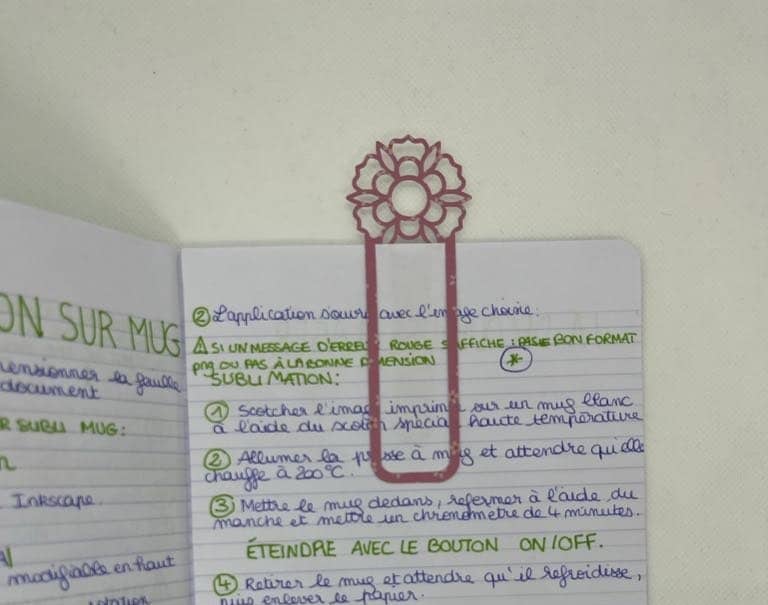 ON SUR MUG
document
R SUBLI MUG:
Inkscape.
modifiable en haut
② L'application s'ouvre avec l'image choisie.
⚠ SI UN MESSAGE D'ERREUR ROUGE S'AFFICHE : PAS LE BON FORMAT
png OU PAS À LA BONNE DIMENSION *
SUBLIMATION:
① Scotcher l'image imprimé sur un mug blanc
à l'aide du scotch spécial haute température
② Allumer la presse à mug et attendre qu'elle
chauffe à 200°C.
③ Mettre le mug dedans, refermer à l'aide du
manche et mettre un chronomètre de 4 minutes.
ÉTEINDRE AVEC LE BOUTON ON/OFF.
④ Retirer le mug et attendre qu'il refroidisse,
puis enlever le papier.